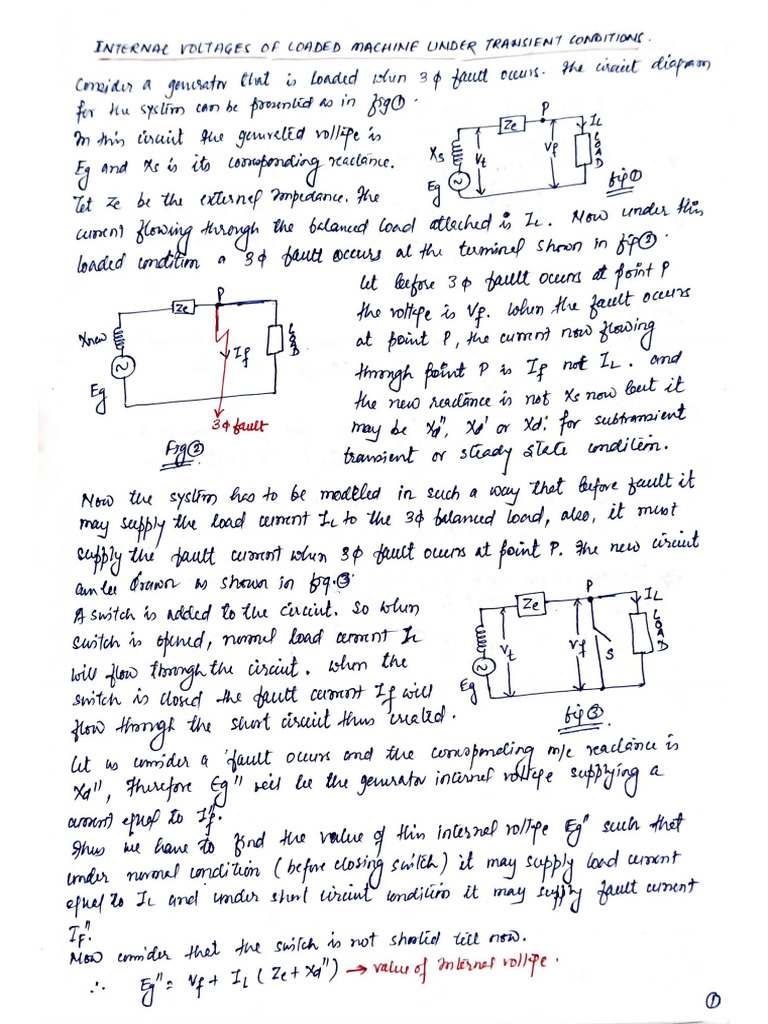 INTERNAL VOLTAGES OF LOADED MACHINE UNDER TRANSIENT CONDITIONS.
Consider a generator that is loaded when 3φ fault occurs. The circuit diagram
for the system can be presented as in fig①.
In this circuit the generated voltage is
Eg and Xs is its corresponding reactance.
Let Ze be the external impedance. The
current flowing through the balanced load attached is IL. Now under this
loaded condition a 3φ fault occurs at the terminal shown in fig②.
P
Ze
IL
Xs
Vt
Vf
LOAD
Eg
fig①
Let before 3φ fault occurs at point P
the voltage is Vf. When the fault occurs
at point P, the current now flowing
through point P is If not IL. and
the new reactance is not Xs now but it
may be Xd'', Xd' or Xd. for subtransient
transient or steady state condition.
P
Ze
Xnew
If
LOAD
Eg
3φ fault
Fig②
Now the system has to be modelled in such a way that before fault it
may supply the load current IL to the 3φ balanced load, also, it must
supply the fault current when 3φ fault occurs at point P. The new circuit
can be drawn as shown in fig.③
A switch is added to the circuit. So when
switch is opened, normal load current IL
will flow through the circuit. When the
switch is closed the fault current If will
flow through the short circuit thus created.
P
Ze
IL
Vt
Vf
S
LOAD
Eg
fig③
Let us consider a fault occurs and the corresponding m/c reactance is
Xd'', Therefore Eg'' will be the generator internal voltage supplying a
current equal to If''.
Thus we have to find the value of this internal voltage Eg'' such that
under normal condition (before closing switch) it may supply load current
equal to IL and under short circuit condition it may supply fault current
IF''.
Now consider that the switch is not shorted till now.
∴ Eg'' = Vf + IL (Ze + Xd'') → value of internal voltage.
①